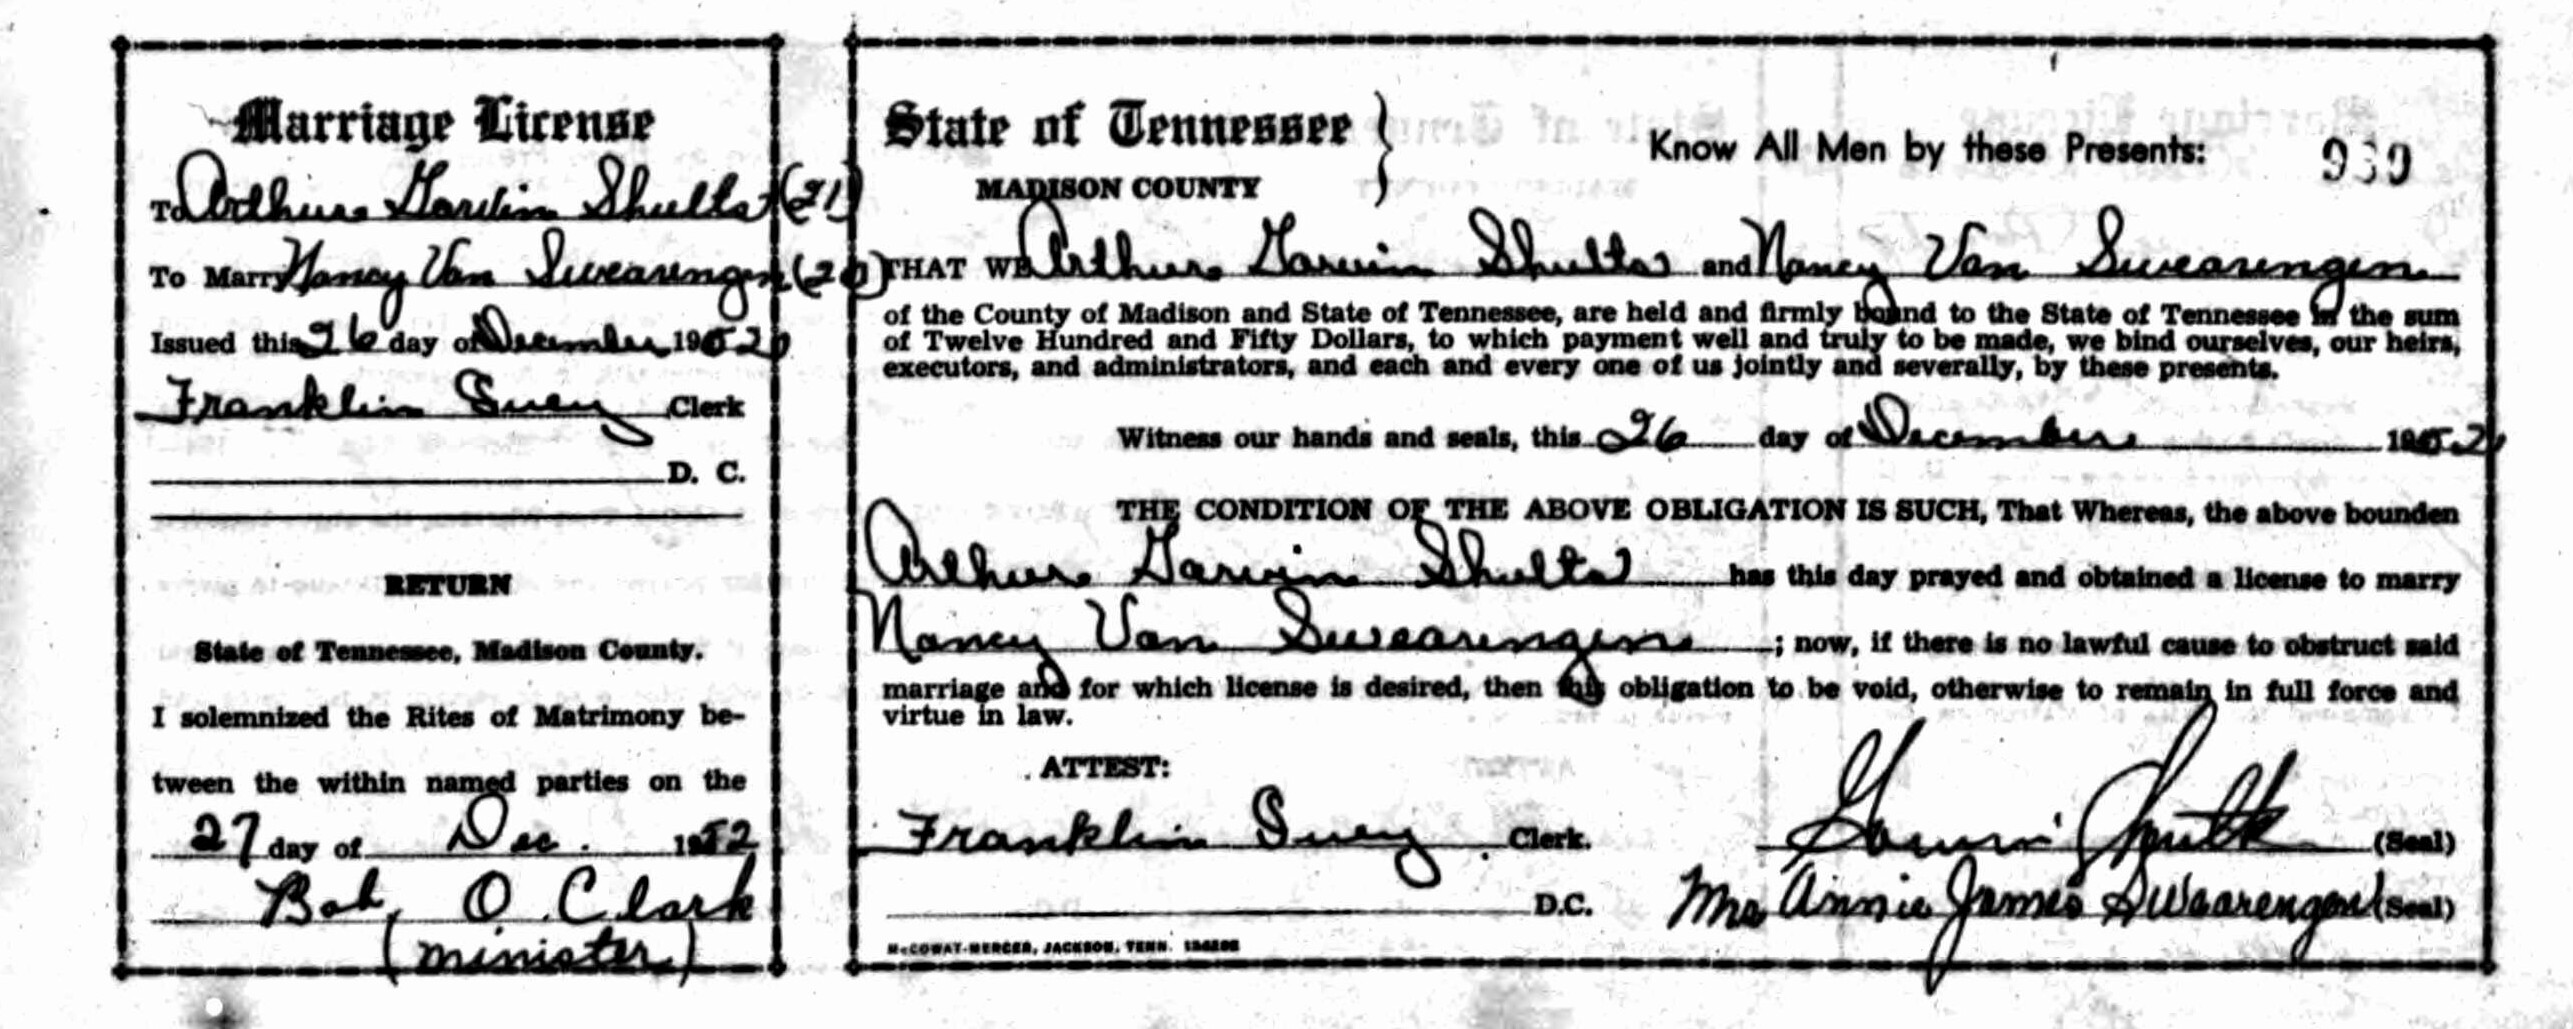 Marriage License
To Arthur Garvin Shults (21)
To Marry Nancy Van Swearengen (20)
Issued this 26 day of December 1952
Franklin Guey Clerk
D. C.
RETURN
State of Tennessee, Madison County.
I solemnized the Rites of Matrimony be-
tween the within named parties on the
27 day of Dec. 1952
Bob O. Clark
(minister)
State of Tennessee } Know All Men by these Presents: 939
MADISON COUNTY
THAT WE Arthur Garvin Shults and Nancy Van Swearengen
of the County of Madison and State of Tennessee, are held and firmly bound to the State of Tennessee in the sum
of Twelve Hundred and Fifty Dollars, to which payment well and truly to be made, we bind ourselves, our heirs,
executors, and administrators, and each and every one of us jointly and severally, by these presents.
Witness our hands and seals, this 26 day of December 1952
THE CONDITION OF THE ABOVE OBLIGATION IS SUCH, That Whereas, the above bounden
Arthur Garvin Shults has this day prayed and obtained a license to marry
Nancy Van Swearengen ; now, if there is no lawful cause to obstruct said
marriage and for which license is desired, then this obligation to be void, otherwise to remain in full force and
virtue in law.
ATTEST:
Franklin Guey Clerk.
D.C.
Garvin Shults (Seal)
Mrs Annie James Swearengen (Seal)
McCOWAT-MERCER, JACKSON, TENN.